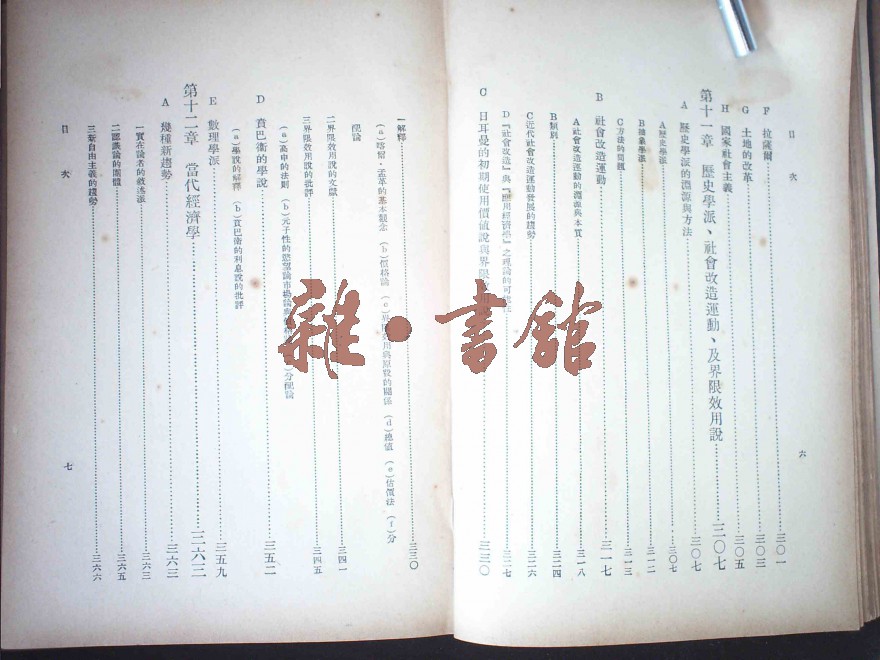 目次
六
F 拉薩爾……三〇一
G 土地的改革……三〇三
H 國家社會主義……三〇五
第十一章 歷史學派、社會改造運動、及界限效用說……三〇七
A 歷史學派的淵源與方法……三〇七
A歷史學派……三〇七
B德奧學派……三一二
C方法的問題……三一三
B 社會改造運動……三一七
A社會改造運動的淵源與本質……三一八
B類別……三二四
C近代社會改造運動發展的趨勢……三二六
D『社會改造』與『應用經濟學』之理論的可能性……三二七
C 日耳曼的初期使用價值說與界限效用說……三三〇
一解釋……三三〇
(a)喀爾·孟革的基本觀念 (b)價格論 (c)界限效用與原費的關係 (d)總值 (e)估價法 (f)分
配論
二界限效用說的文獻……三四一
三界限效用說的批評……三四五
(a)高申的法則 (b)元子性的慾望論市場論
分配論
D 賁巴衛的學說……三五二
(a)學說的解釋 (b)賁巴衛的利息說的批評
E 數理學派……三五九
第十二章 當代經濟學……三六三
A 幾種新趨勢……三六三
一實在論者的敘述派……三六三
二認識論的團體……三六五
三新自由主義的趨勢……三六六
目次
七
雜·書館